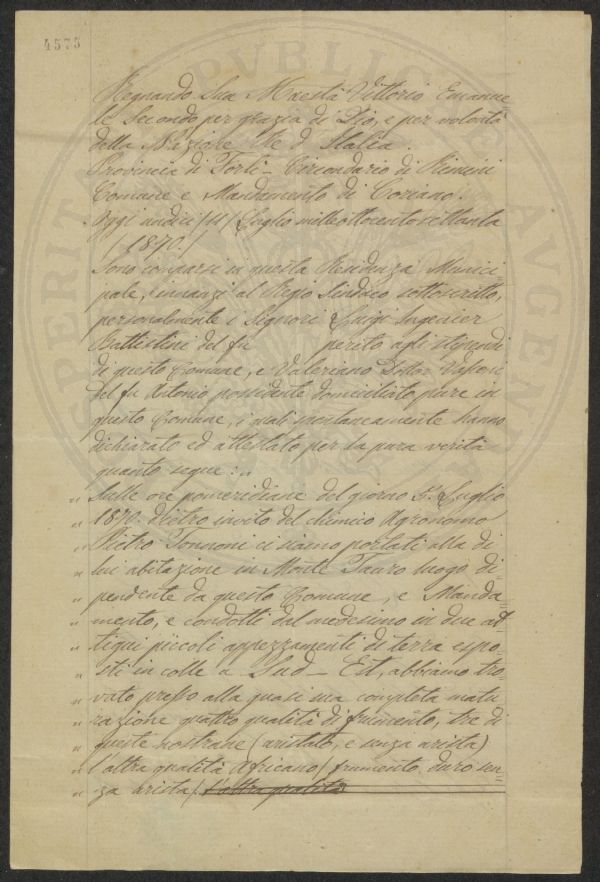 4573
Regnando Sua Maestà Vittorio Emanue
le Secondo per grazia di Dio, e per volontà
della Nazione Re d'Italia.
Provincia di Forlì - Circondario di Rimini
Comune e Mandamento di Coriano.
Oggi undici /11/ Luglio milleottocentosettanta
/1870./
Sono comparsi in questa Residenza Munici
pale, innanzi al Regio Sindaco sottoscritto,
personalmente i Signori Luigi Ingenier
Battistini del fu perito agli stipendi
di questo Comune, e Valeriano Dottor
del fu Antonio possidente domiciliato pure in
questo Comune, i quali spontaneamente hanno
dichiarato ed attestato per la pura verità
quanto segue:
„ Sulle ore pomeridiane del giorno 5 Luglio
„ 1870 dietro invito del chimico Agronomo
„ Pietro Tonnoni ci siamo portati alla di
„ lui abitazione in Monte Tauro luogo di
„ pendente da questo Comune, e Manda
„ mento, e condotti dal medesimo in due at
„ tigui piccoli appezzamenti di terra espo-
„ sti in colle a Sud-Est, abbiamo tro-
„ vato presso alla quasi sua completa matu
„ razione quattro qualità di frumento, tre di
„ queste nostrane (aristato, e senza arista)
„ l'altra qualità Africano (frumento duro sen
„ za arista) l'altra qualità
PVBLIC
SPERITA
AVGENT